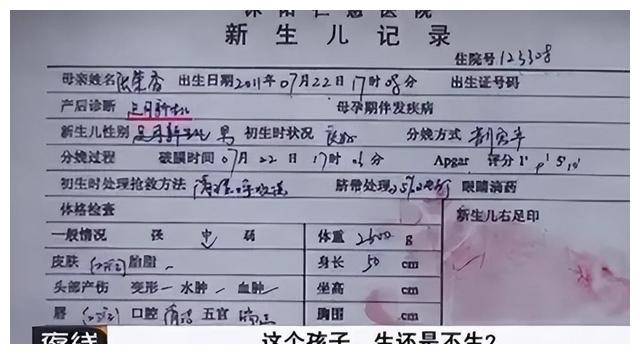 沭阳仁慈医院
新生儿记录
住院号 123308
母亲姓名 张荣香 出生日期 2011年07月22日17时08分 出生证号码
产后诊断 足月新生儿 母孕期伴发疾病
新生儿性别 足月新生儿 男 初生时状况 良好 分娩方式 剖宫产
分娩过程 破膜时间 07月22日17时 分 Apgar 评分 1' 9' 5' 10'
初生时处理抢救方法 清理呼吸道 脐带处理 眼睛滴药
体格检查 新生儿右足印
一般情况 强 中 弱 体重 2600 g
皮肤 红润 胎脂 身长 50 cm
头部产伤 变形 水肿 血肿 坐高 cm
唇 红润 口腔 清洁 五官 端正 胸围 cm
夜线 这个孩子 生还是不生?